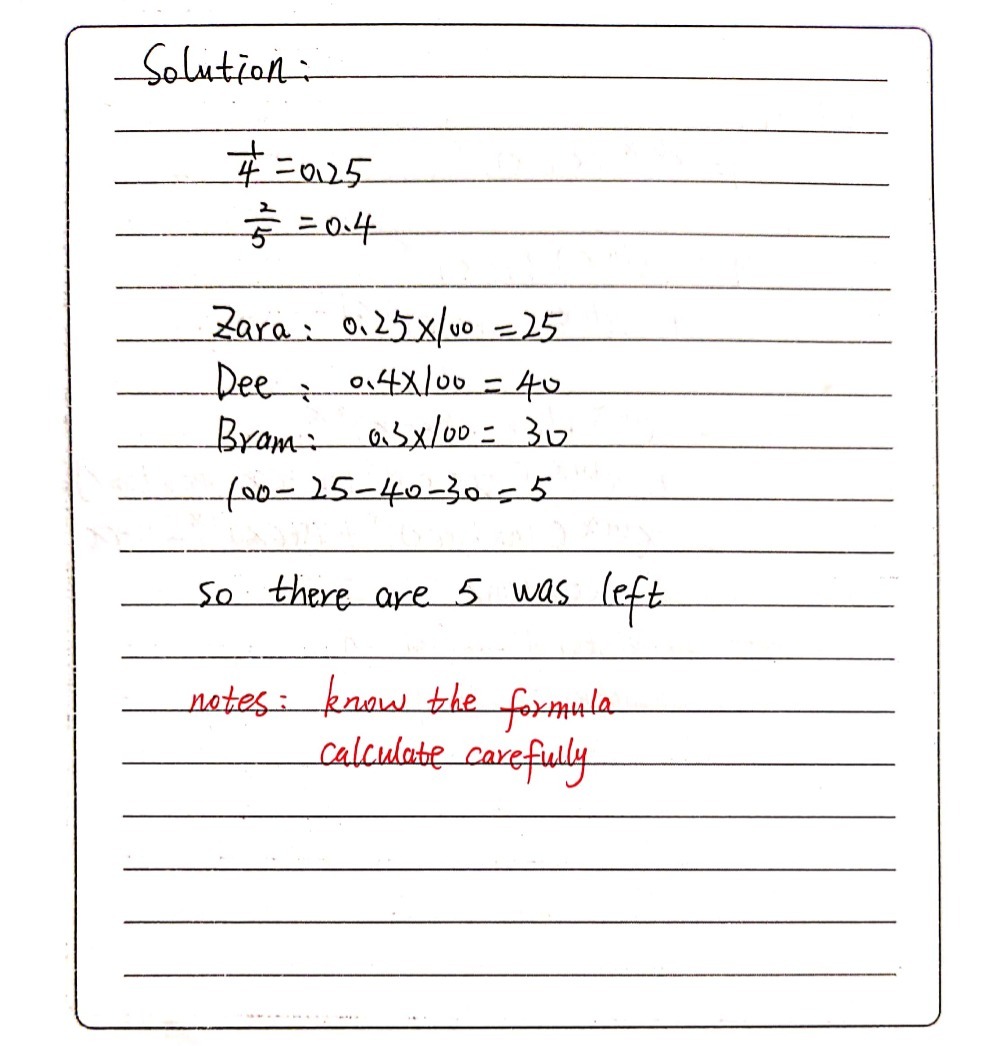 Solution:
1/4 = 0.25
2/5 = 0.4
Zara: 0.25×100 = 25
Dee: 0.4×100 = 40
Bram: 0.3×100 = 30
100 - 25 - 40 - 30 = 5
so there are 5 was left
notes: know the formula
calculate carefully